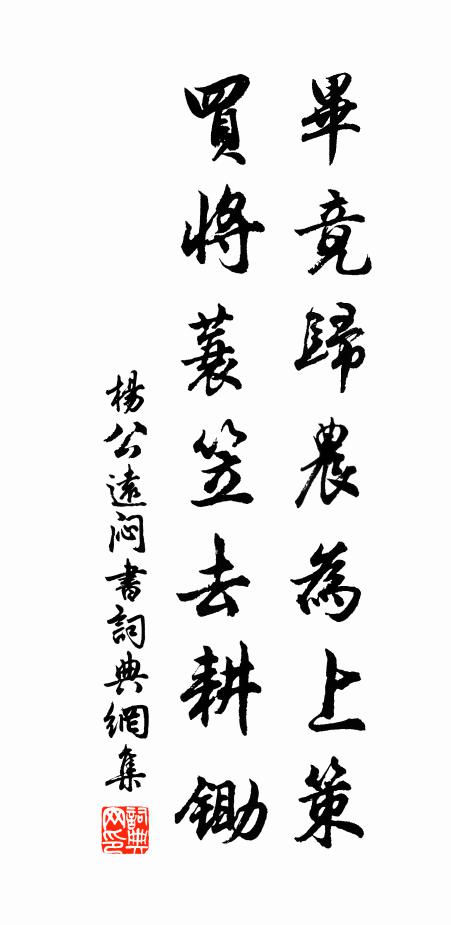 畢竟歸農為上策
買將蓑笠去耕鋤
楊公遠悶書詞典網集
詞典網印